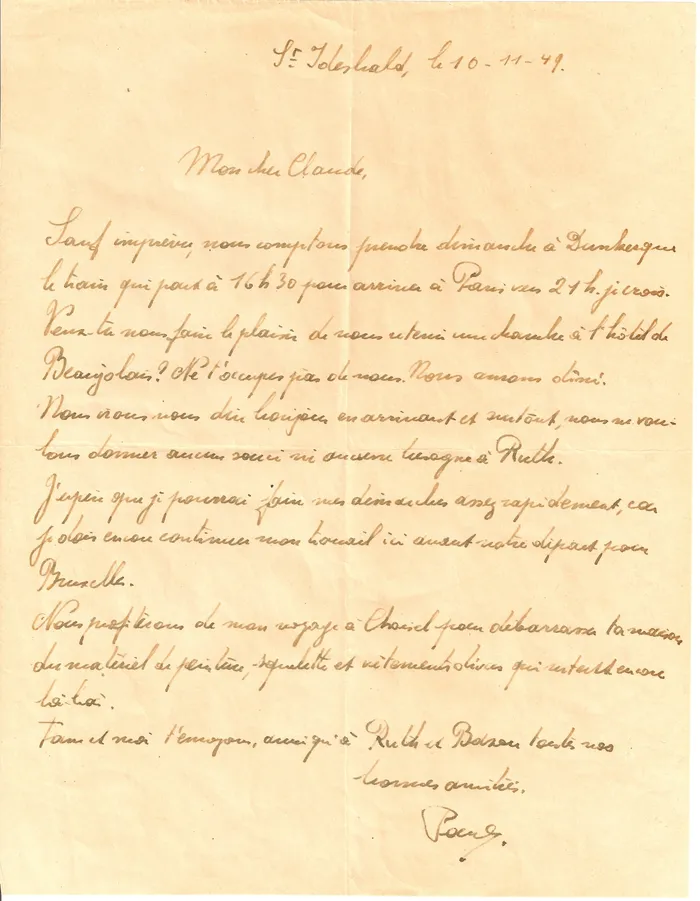 St Idesbald, le 10-11-49.
Mon cher Claude,
Sauf imprévu, nous comptons prendre dimanche à Dunkerque
le train qui part à 16h30 pour arriver à Paris vers 21h. je crois.
Veux-tu nous faire le plaisir de nous retenir une chambre à l'hôtel de
Beaujolais? Ne t'occupes pas de nous. Nous aurons dîné.
Nous irons vous dire bonjour en arrivant et surtout, nous ne vou-
lons donner aucun souci ni aucune besogne à Ruth.
J'espère que je pourrai faire mes démarches assez rapidement, car
je dois encore continuer mon travail ici avant notre départ pour
Bruxelles.
Nous profiterons de mon voyage à Choisel pour débarrasser ta maison
du matériel de peinture, squelette et vêtements divers qui restent encore
là-bas.
Tam et moi t'envoyons, ainsi qu'à Ruth et toutes nos
bonnes amitiés.
Paul